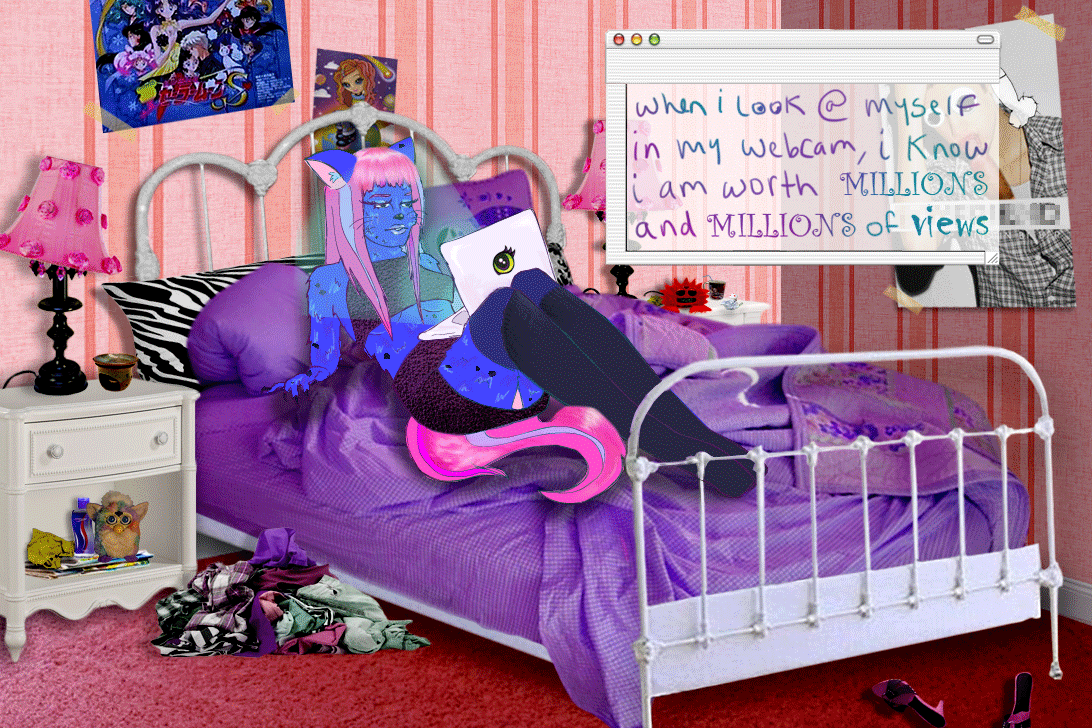 セーラームーンS
when i look @ myself
in my webcam, i know
i am worth MILLIONS
and MILLIONS of views